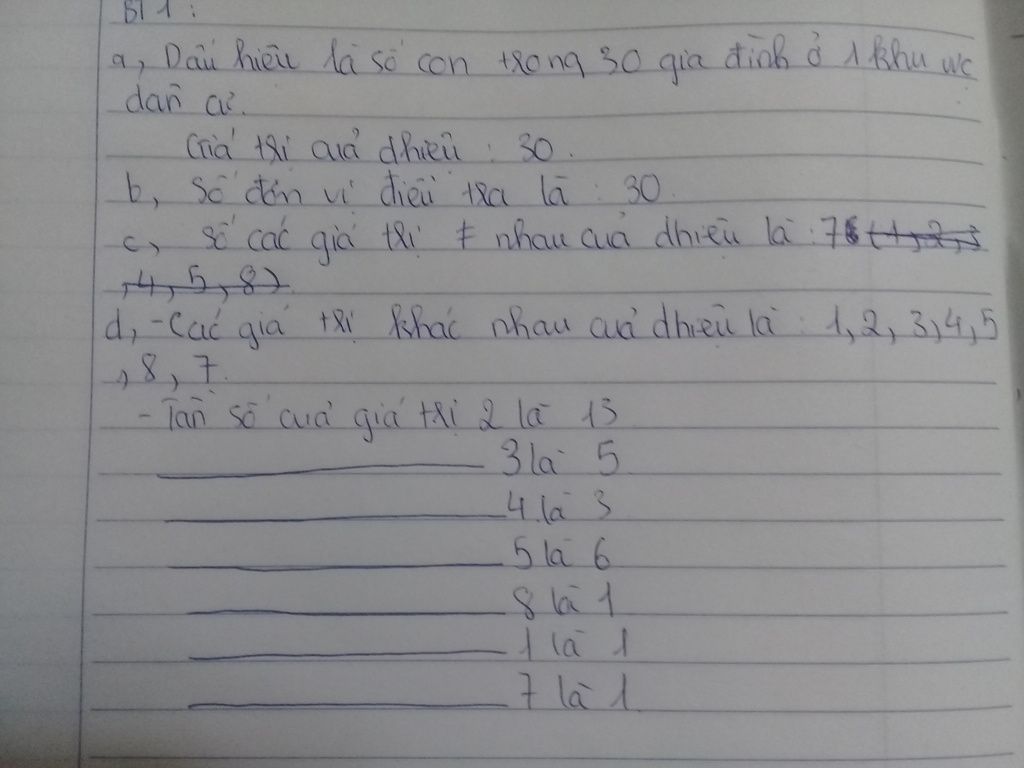 BT 1 :
a, Dấu hiệu là số con trong 30 gia đình ở 1 khu vực
dân cư.
Giá trị của dhiệu : 30.
b, Số đơn vị điều tra là : 30.
c, Số các giá trị ≠ nhau của dhiệu là : 7 (1, 2, 3
, 4, 5, 8)
d, - Các giá trị khác nhau của dhiệu là : 1, 2, 3, 4, 5
, 8, 7.
- Tần số của giá trị 2 là 13
3 là 5
4 là 3
5 là 6
8 là 1
1 là 1
7 là 1